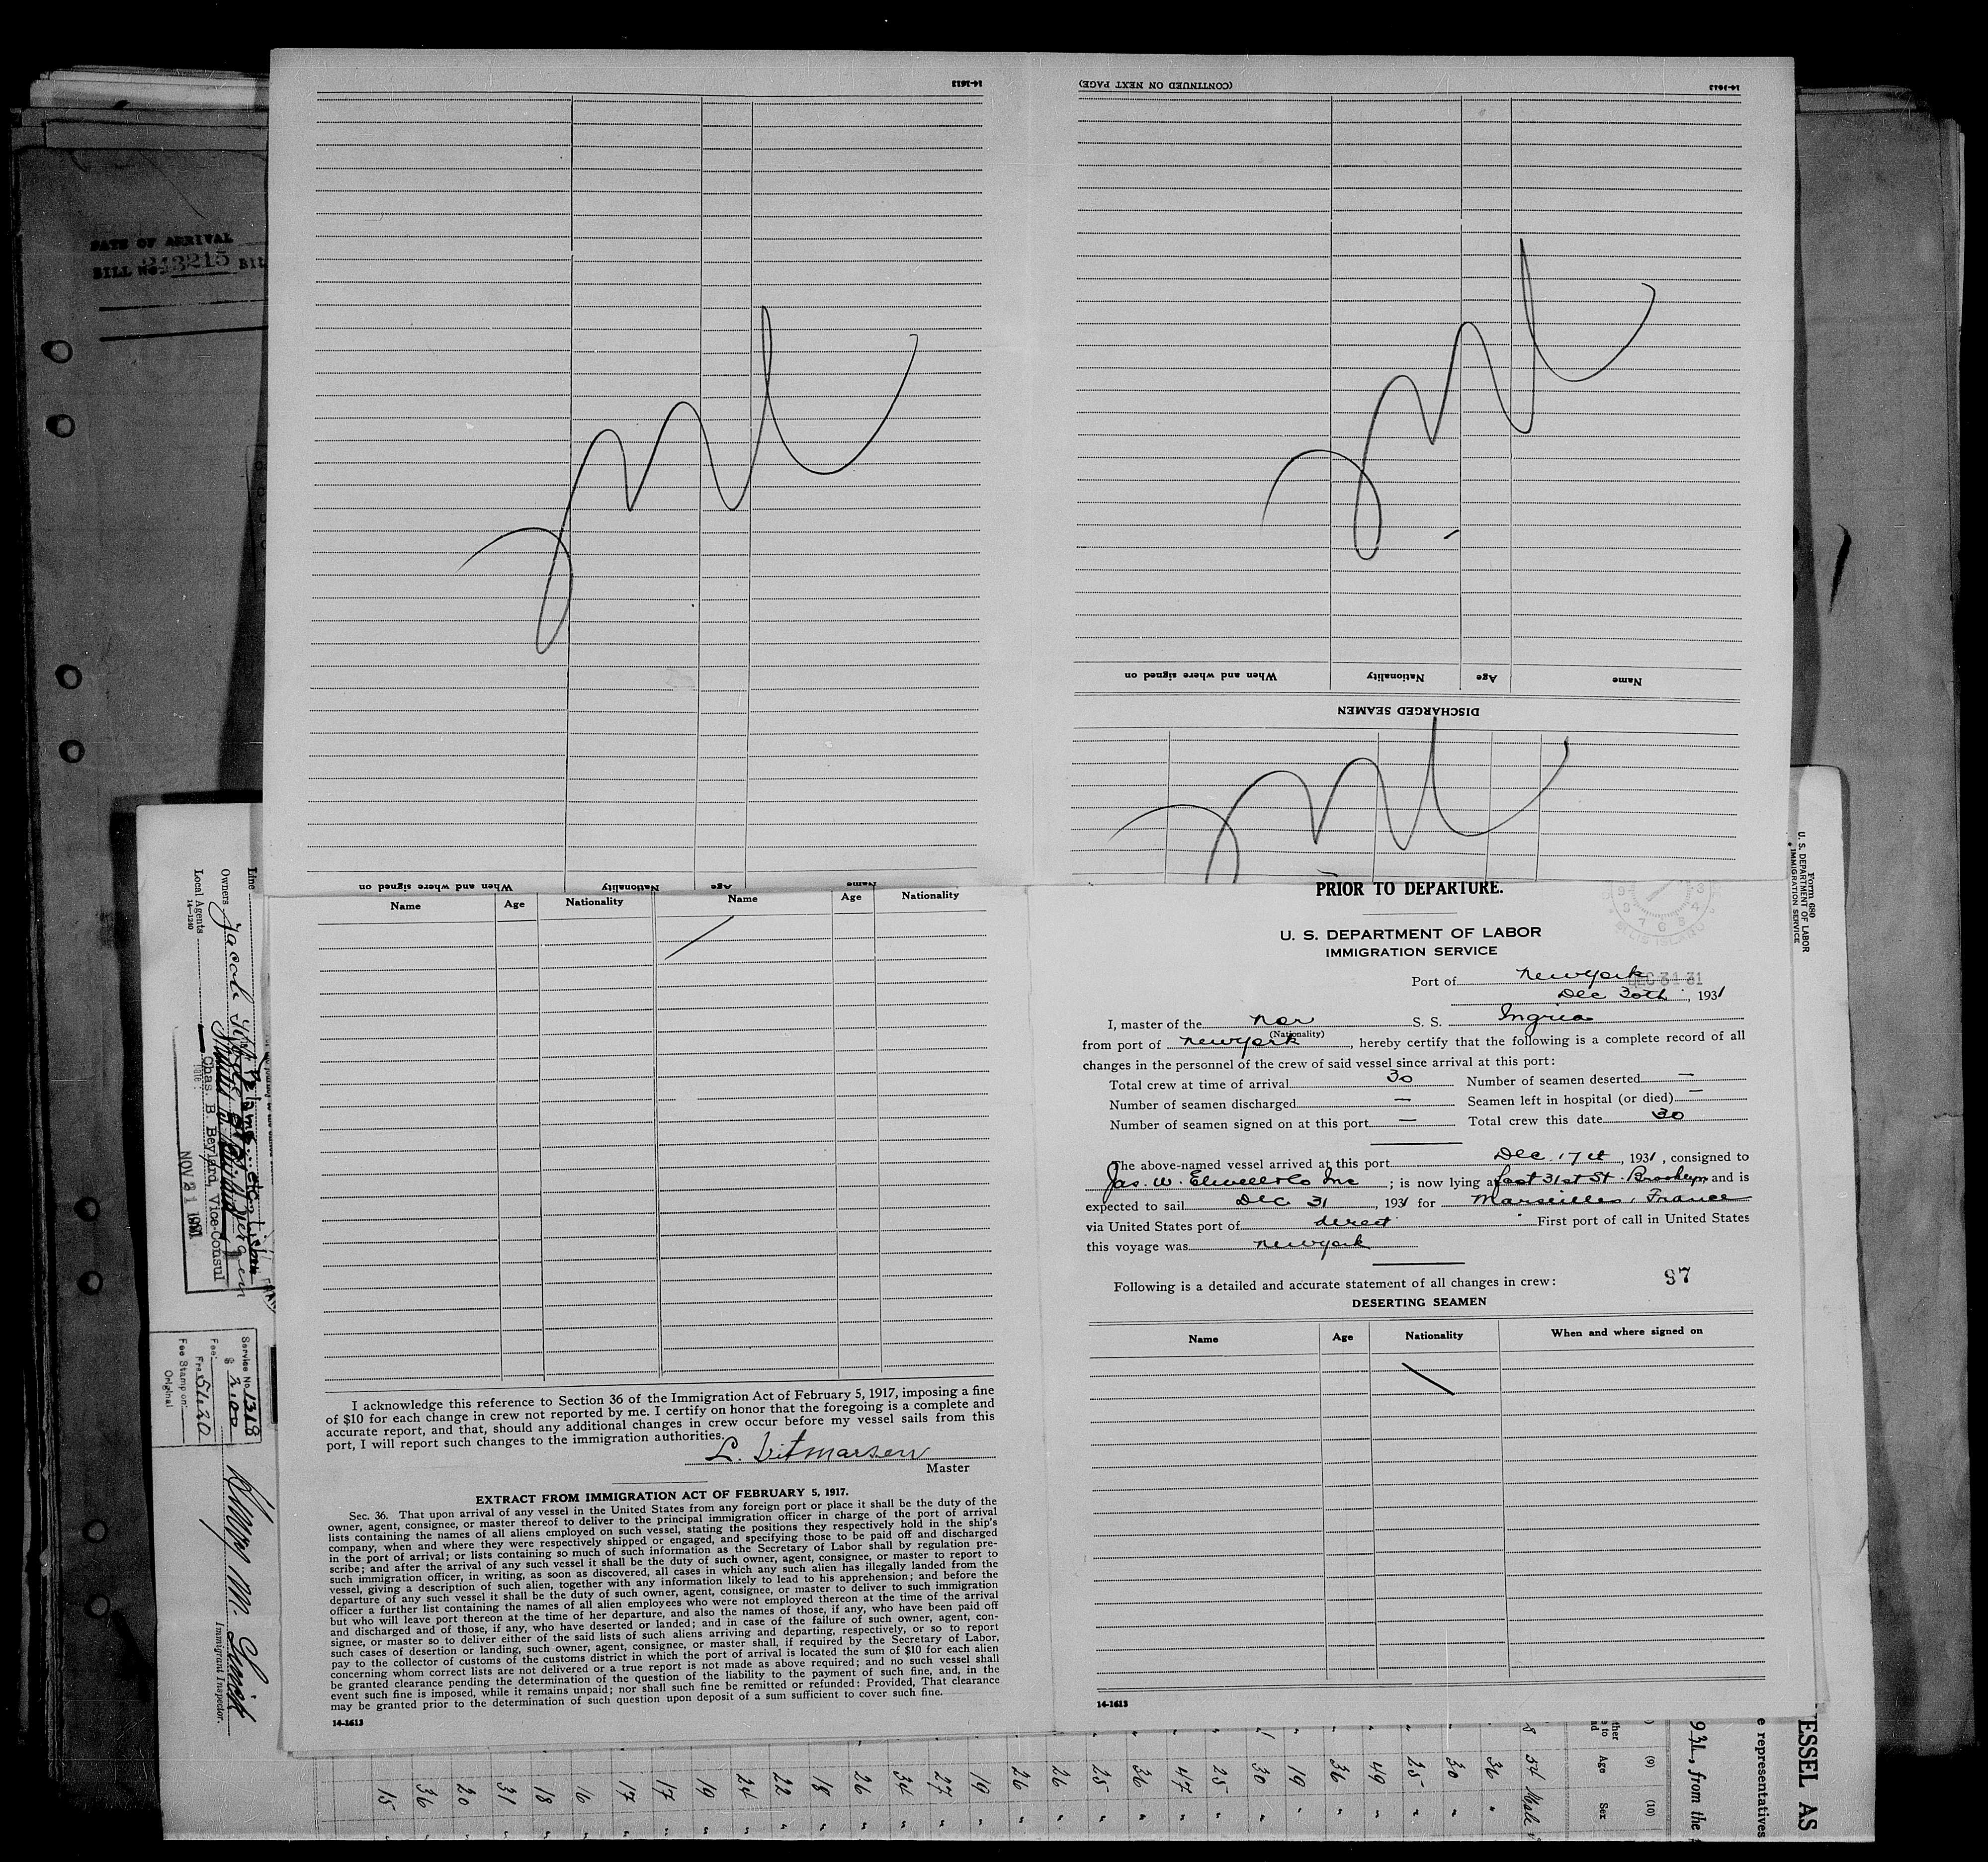 14-1613
(CONTINUED ON NEXT PAGE)
14-1613
DATE OF ARRIVAL
BILL No. 243215
When and where signed on Nationality Age Name
DISCHARGED SEAMEN
When and where signed on Nationality Age Name
Name Age Nationality Name Age Nationality
I acknowledge this reference to Section 36 of the Immigration Act of February 5, 1917, imposing a fine
of $10 for each change in crew not reported by me. I certify on honor that the foregoing is a complete and
accurate report, and that, should any additional changes in crew occur before my vessel sails from this
port, I will report such changes to the immigration authorities.
L. Ditmarsen
Master
EXTRACT FROM IMMIGRATION ACT OF FEBRUARY 5, 1917.
Sec. 36. That upon arrival of any vessel in the United States from any foreign port or place it shall be the duty of the
owner, agent, consignee, or master thereof to deliver to the principal immigration officer in charge of the port of arrival
lists containing the names of all aliens employed on such vessel, stating the positions they respectively hold in the ship's
company, when and where they were respectively shipped or engaged, and specifying those to be paid off and discharged
in the port of arrival; or lists containing so much of such information as the Secretary of Labor shall by regulation pre-
scribe; and after the arrival of any such vessel it shall be the duty of such owner, agent, consignee, or master to report to
such immigration officer, in writing, as soon as discovered, all cases in which any such alien has illegally landed from the
vessel, giving a description of such alien, together with any information likely to lead to his apprehension; and before the
departure of any such vessel it shall be the duty of such owner, agent, consignee, or master to deliver to such immigration
officer a further list containing the names of all alien employees who were not employed thereon at the time of the arrival
but who will leave port thereon at the time of her departure, and also the names of those, if any, who have been paid off
and discharged and of those, if any, who have deserted or landed; and in case of the failure of such owner, agent, con-
signee, or master so to deliver either of the said lists of such aliens arriving and departing, respectively, or so to report
such cases of desertion or landing, such owner, agent, consignee, or master shall, if required by the Secretary of Labor,
pay to the collector of customs of the customs district in which the port of arrival is located the sum of $10 for each alien
concerning whom correct lists are not delivered or a true report is not made as above required; and no such vessel shall
be granted clearance pending the determination of the question of the liability to the payment of such fine, and, in the
event such fine is imposed, while it remains unpaid; nor shall such fine be remitted or refunded: Provided, That clearance
may be granted prior to the determination of such question upon deposit of a sum sufficient to cover such fine.
14-1613
PRIOR TO DEPARTURE.
U. S. DEPARTMENT OF LABOR
IMMIGRATION SERVICE
ELLIS ISLAND
Port of New York
DEC 31 31
Dec 30th, 1931
I, master of the Nor S. S. Ingria
(Nationality)
from port of New York, hereby certify that the following is a complete record of all
changes in the personnel of the crew of said vessel since arrival at this port:
Total crew at time of arrival 30 Number of seamen deserted —
Number of seamen discharged — Seamen left in hospital (or died) —
Number of seamen signed on at this port — Total crew this date 30
The above-named vessel arrived at this port Dec. 17th, 1931, consigned to
Jas. W. Elwell & Co Inc; is now lying at foot 31st St. Brooklyn and is
expected to sail Dec 31, 1931 for Marseilles, France
via United States port of direct First port of call in United States
this voyage was New York
Following is a detailed and accurate statement of all changes in crew:
97
DESERTING SEAMEN
Name Age Nationality When and where signed on
14-1613
Line
Owners Jacob Kjøde Bergen
Local Agents
14-1240
Chas. B. Beylard, Vice-Consul
NOV 21 1931
Service No. 1318
Fee: $ 2.00
Frs. 51.20
Fee Stamp on
Original
Immigrant Inspector.
Form 680
U. S. DEPARTMENT OF LABOR
IMMIGRATION SERVICE
ESSEL AS
e representatives
931, from the
(9) (10)
Age Sex
54 Male
36
30
25
49
36
19
30
25
47
36
25
26
26
19
27
34
26
18
22
24
19
17
17
16
18
31
20
36
15